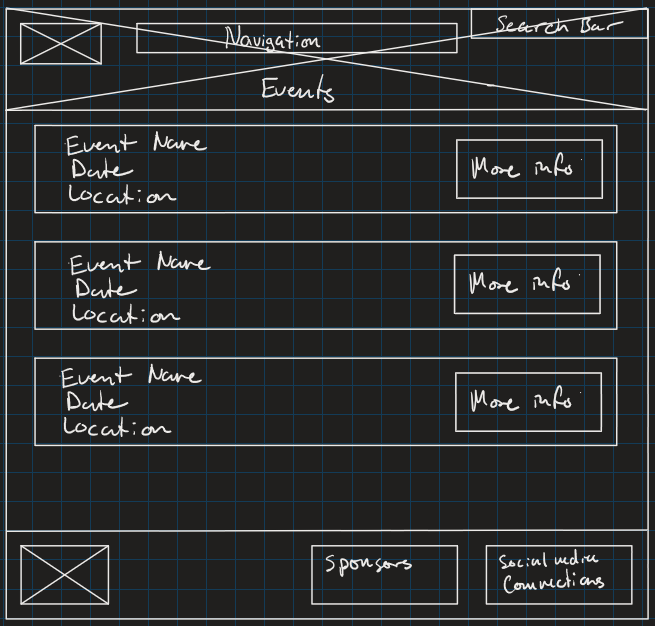 Navigation
Search Bar
Events
Event Name
Date
Location
More info
Event Name
Date
Location
More info
Event Name
Date
Location
More info
Sponsors
Social media
Connections